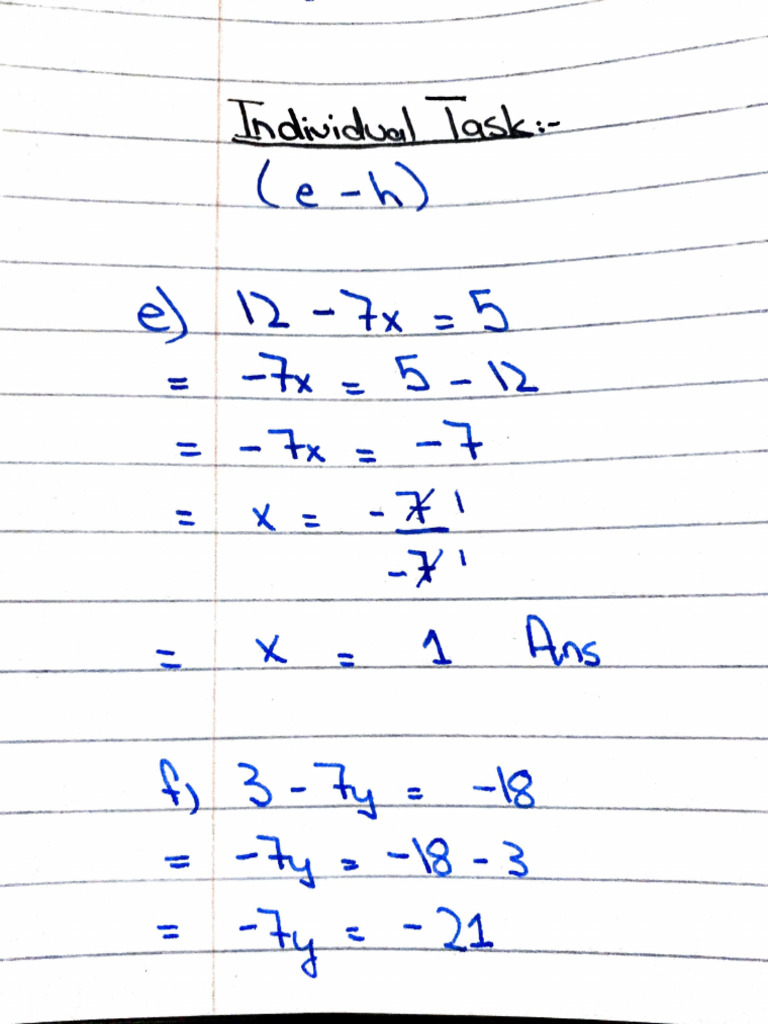 Individual Task:-
(e-h)
e) 12 - 7x = 5
= -7x = 5 - 12
= -7x = -7
= x = -7 1
-7 1
= x = 1 Ans
f) 3 - 7y = -18
= -7y = -18 - 3
= -7y = -21